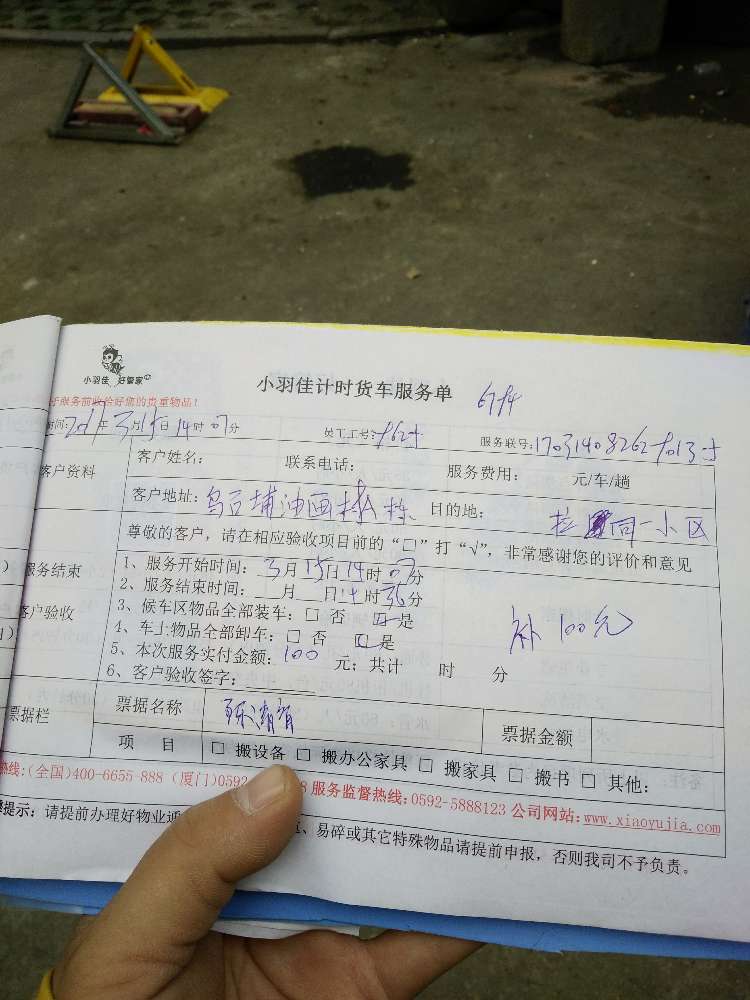 小羽佳 好管家
小羽佳计时货车服务单
于服务前收拾好您的贵重物品!
时间:2017年3月15日14时07分 员工工号: 服务联号:
客户资料 客户姓名: 联系电话: 服务费用: 元/车/趟
客户地址:乌石埔油画村 栋 目的地: 同一小区
尊敬的客户,请在相应验收项目前的“□”打“√”,非常感谢您的评价和意见
服务结束
客户验收
1、服务开始时间:3月15日14时07分
2、服务结束时间: 月 日14时36分
3、候车区物品全部装车:□ 否 □ 是
4、车上物品全部卸车:□ 否 □ 是
5、本次服务实付金额:100 元;共计 时 分
补100元
6、客户验收签字:
票据栏 票据名称 票据金额
项 目 □ 搬设备 □ 搬办公家具 □ 搬家具 □ 搬书 □ 其他:
热线:(全国)400-6655-888 (厦门)0592 8 服务监督热线:0592-5888123 公司网站:www.xiaoyujia.com
提示:请提前办理好物业 、易碎或其它特殊物品请提前申报,否则我司不予负责。